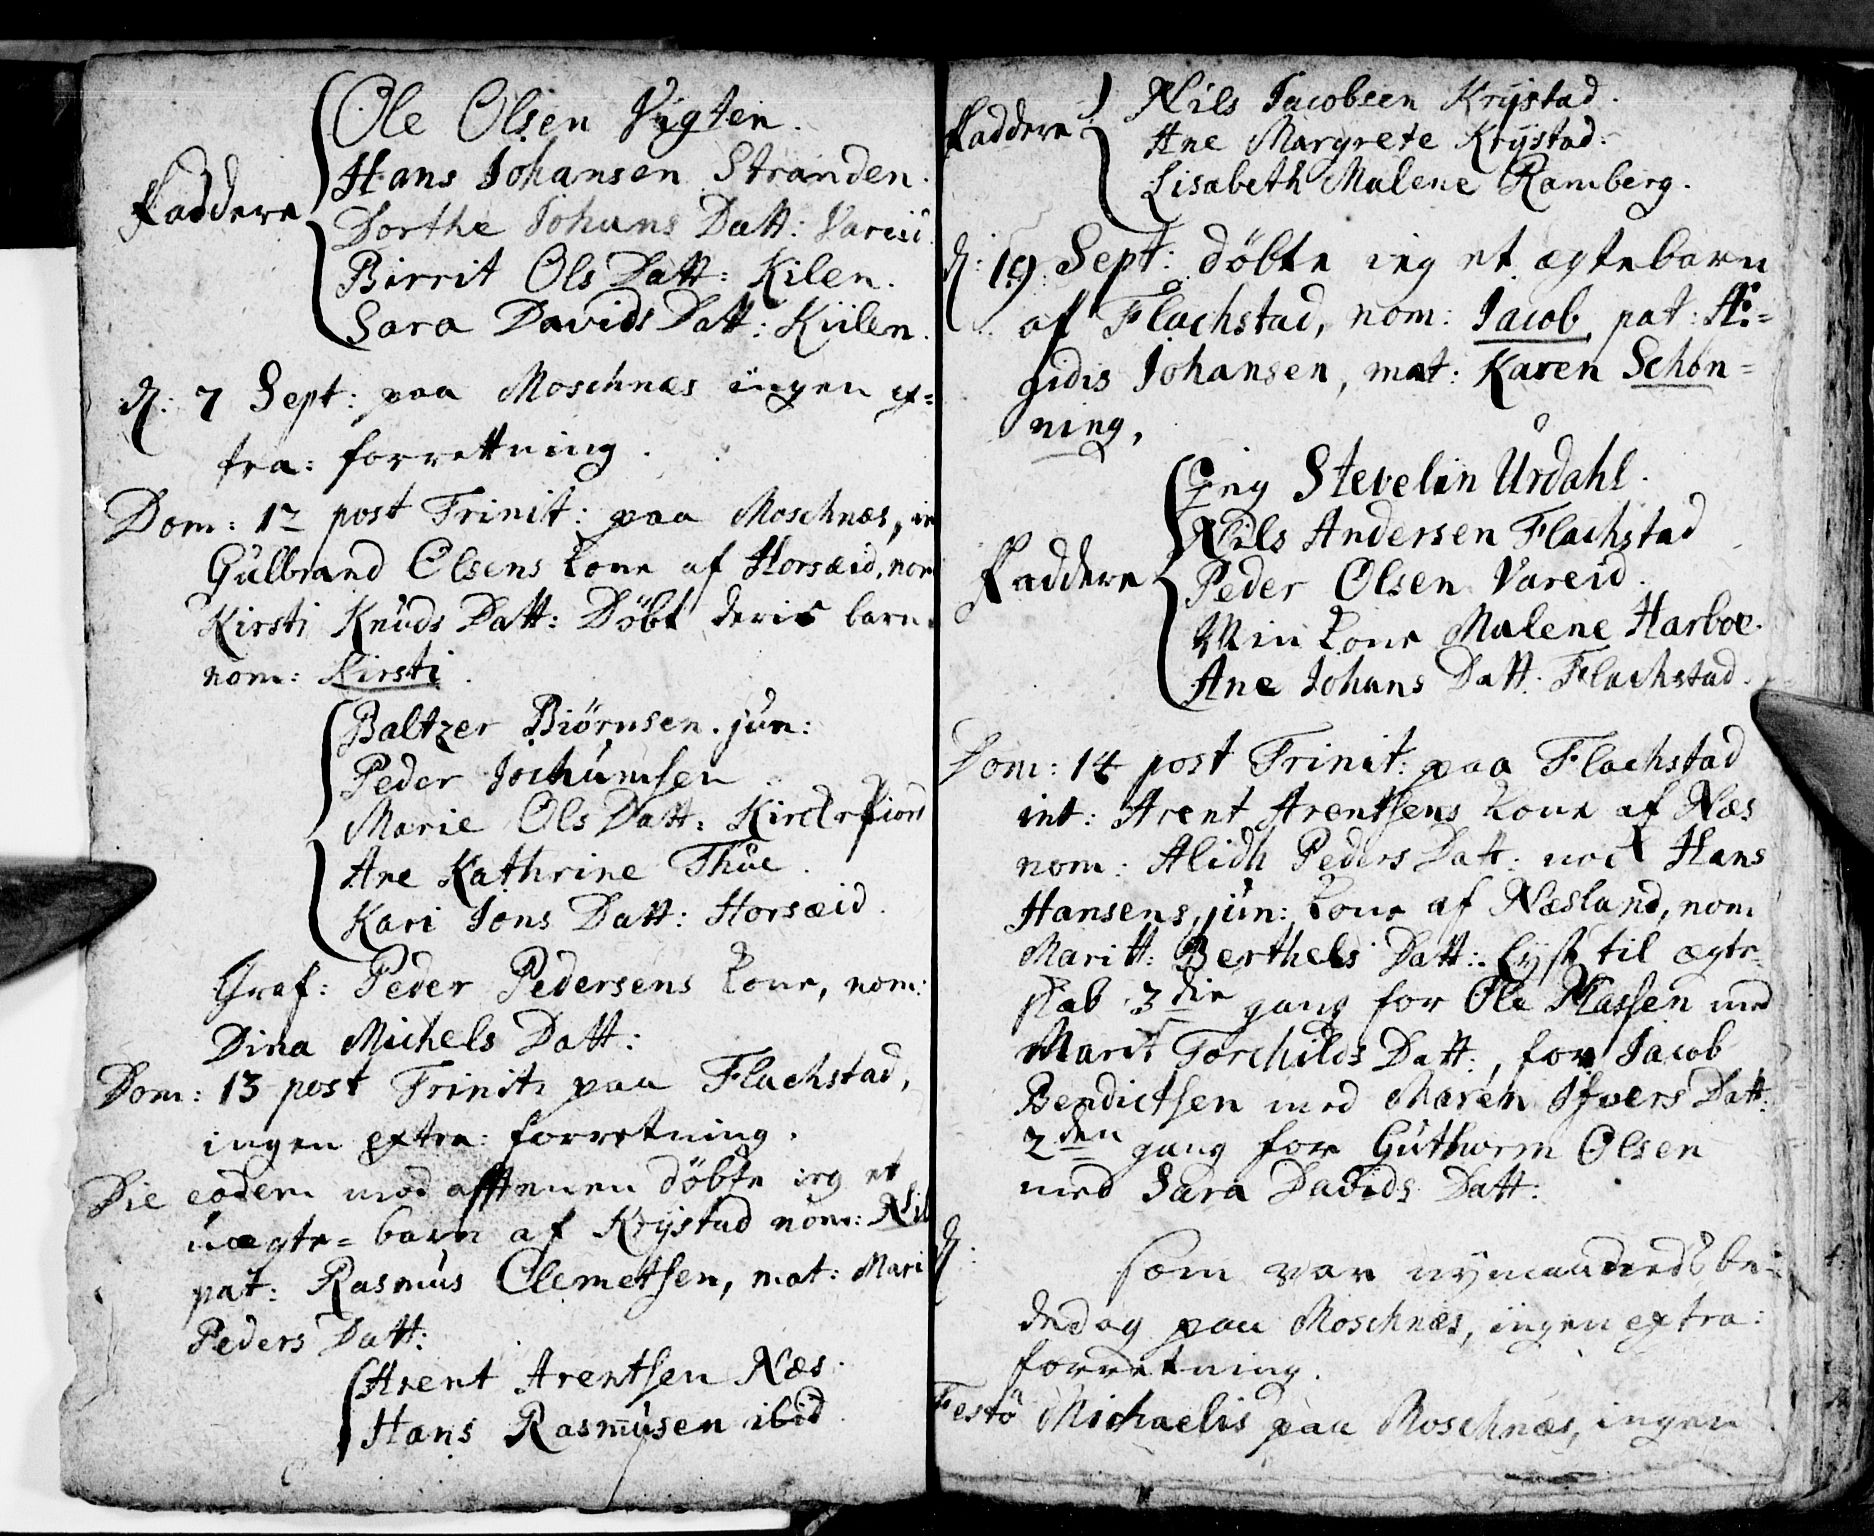 Ole Olsen Vigten.
Hans Johansen Stranden.
Faddere
Dorthe Johans Datt: Vareid
Birrit Ols Datt: Kilen.
Sara Davids Datt: Kiilen.
d: 7 Sept: paa Moschnæs ingen ex=
tra: forrettning.
Dom: 12 post Trinit: paa Moschnæs, in
Gulbrand Olsens kone af Horsæid, nom
Kirsti Knuds Datt: Döbt deris barn
nom: Kirsti.
Baltzer Biörnsen. jun:
Peder Jochumsen
Marie Ols Datt: Kirckefiord
Ane Kathrine Thue.
Kari Jons Datt: Horsæid.
Graf: Peder Pedersens kone, nom:
Dina Michels Datt:
Dom: 13 post Trinit: paa Flachstad,
ingen extra: forretning.
Die eodem mod afftenen döbte ieg et
uægte=barn af Krystad nom: Nil
pat: Rasmus Clemetsen, mat: Mari
Peders Datt:
Arent Arentsen Næs.
Hans Rasmusen ibid.
Nils Jacobsen Krystad.
Faddere
Ane Margrete Krystad.
Lisabeth Malene Ramberg.
d: 19 Sept: döbte ieg et ægtebarn
af Flachstad, nom: Jacob, pat: Æ=
gidis Johansen, mat: Karen Schön=
ning,
Jeg Stevelin Urdahl.
Nils Andersen Flachstad
Faddere
Peder Olsen Vareid.
Min kone Malene Harboe.
Ane Johans Datt. Flachstad.
Dom: 14 post Trinit: paa Flachstad
int: Arent Arentsens kone af Næs
nom: Alidh Peders Datt: nock Hans
Hansens, jun: kone af Næsland, nom
Maritt: Berthels Datt: lyst til ægte
skab 3die gang for Ole Klassen med
Marit Torchilds Datt:, for Jacob
Bendictsen med Maren Ifvers Datt:
2den gang for Guthorm Olsen
med Sara Davids Datt:
d:
som var nymaaneds be=
dedag paa Moschnæs, ingen extra:
forretning.
Festo Michaelis paa Moschnæs, ingen